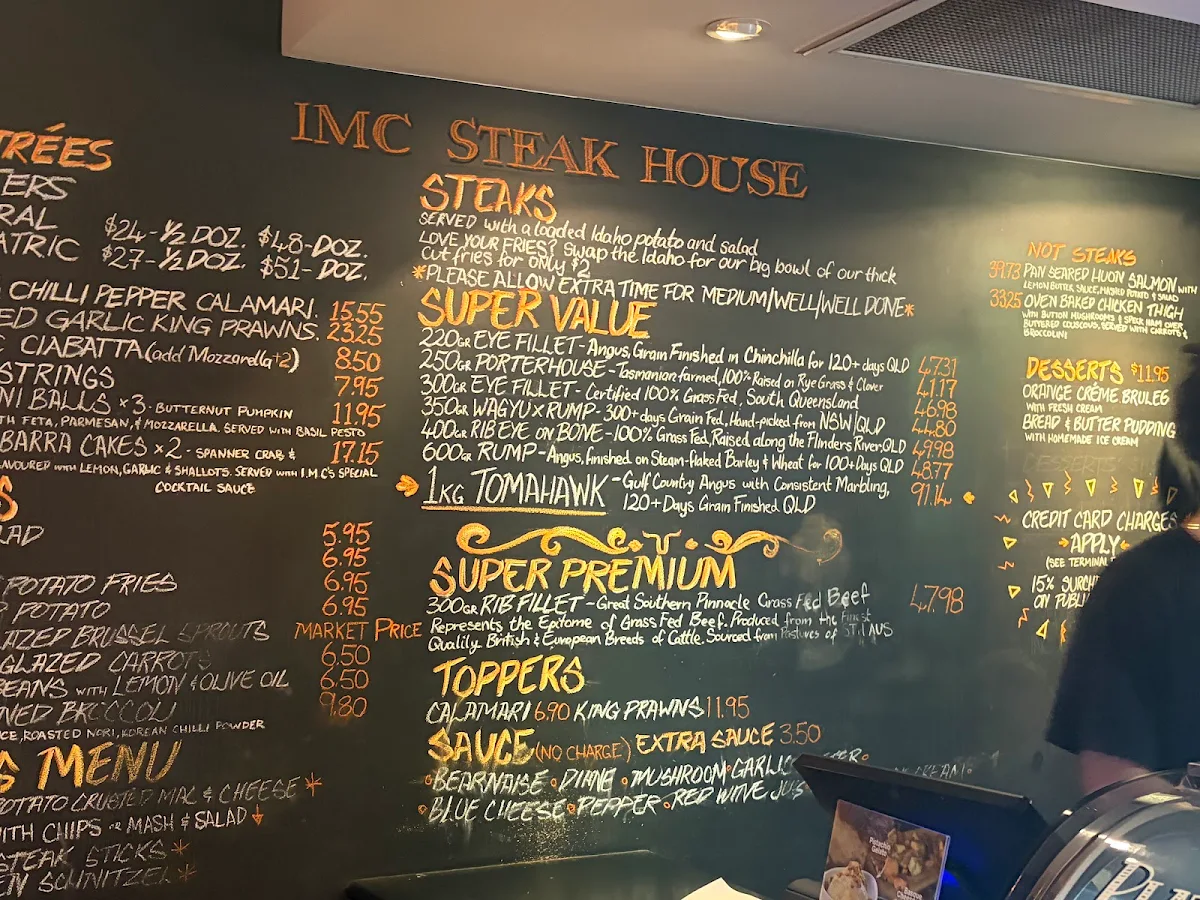 IMC STEAK HOUSE
TRÉES
TERS
RAL $24-½ DOZ. $48-DOZ.
ATRIC $27-½ DOZ. $51-DOZ.
CHILLI PEPPER CALAMARI. 15.55
ED GARLIC KING PRAWNS. 23.25
CIABATTA (add Mozzarella +2) 8.50
STRINGS 7.95
NI BALLS ×3 - BUTTERNUT PUMPKIN 11.95
TH FETA, PARMESAN, & MOZZARELLA. SERVED WITH BASIL PESTO
BARRA CAKES ×2 - SPANNER CRAB & 17.15
LAVOURED WITH LEMON, GARLIC & SHALLOTS. SERVED WITH I.M.C'S SPECIAL
COCKTAIL SAUCE
S
LAD 5.95
6.95
POTATO FRIES 6.95
POTATO 6.95
AZED BRUSSEL SPROUTS MARKET PRICE
GLAZED CARROTS 6.50
BEANS WITH LEMON & OLIVE OIL 6.50
NED BROCCOLI 9.80
CE, ROASTED NORI, KOREAN CHILLI POWDER
S MENU
POTATO CRUSTED MAC & CHEESE *
WITH CHIPS OR MASH & SALAD
STEAK STICKS *
EN SCHNITZEL *
STEAKS
SERVED with a loaded Idaho potato and salad
LOVE YOUR FRIES? Swap the Idaho for our big bowl of our thick
cut fries for only $2
*PLEASE ALLOW EXTRA TIME FOR MEDIUM/WELL/WELL DONE*
SUPER VALUE
220GR EYE FILLET - Angus, Grain Finished in Chinchilla for 120+ days QLD 47.31
250GR PORTERHOUSE - Tasmanian farmed, 100% Raised on Rye Grass & Clover 41.17
300GR EYE FILLET - Certified 100% Grass Fed, South Queensland 46.98
350GR WAGYU X RUMP - 300+ days Grain Fed, Hand-picked from NSW/QLD 44.80
400GR RIB EYE ON BONE - 100% Grass Fed, Raised along the Flinders River QLD 49.98
600GR RUMP - Angus, finished on Steam-flaked Barley & Wheat for 100+ Days QLD 48.77
1KG TOMAHAWK - Gulf Country Angus with Consistent Marbling, 91.14
120+ Days Grain Finished QLD
SUPER PREMIUM
300GR RIB FILLET - Great Southern Pinnacle Grass Fed Beef 47.98
Represents the Epitome of Grass Fed Beef. Produced from the Finest
Quality British & European Breeds of Cattle. Sourced from Pastures of STH AUS
TOPPERS
CALAMARI 6.90 KING PRAWNS 11.95
SAUCE (NO CHARGE) EXTRA SAUCE 3.50
BEARNAISE • DIANE • MUSHROOM • GARLIC
CREAM
BLUE CHEESE • PEPPER • RED WINE JUS
NOT STEAKS
39.73 PAN SEARED HUON SALMON WITH
LEMON BUTTER SAUCE, MASHED POTATO & SALAD
33.25 OVEN BAKED CHICKEN THIGH
WITH BUTTON MUSHROOMS & SPECK HAM OVER
BUTTERED COUSCOUS. SERVED WITH CARROTS &
BROCCOLINI
DESSERTS $11.95
ORANGE CRÉME BRULEE
WITH FRESH CREAM
BREAD & BUTTER PUDDING
WITH HOMEMADE ICE CREAM
CREDIT CARD CHARGES
APPLY
(SEE TERMINAL
15% SURCH
ON PUBLI
Pistachio
Gelato